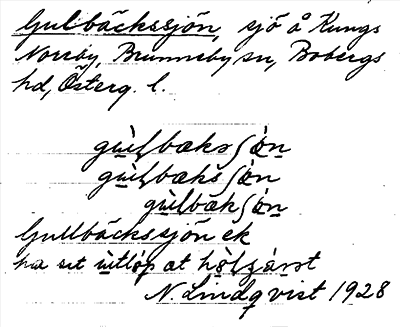 Gulbäckssjön, sjö å Kungs
Norrby, Brunneby sn, Bobergs
hd, Österg. l.
gu̇lbæksʃön
gu̇lbæksʃön
gu̇lbækʃön
Gullbäckssjön ek
ha set ùtlȯp at
N. Lindqvist 1928